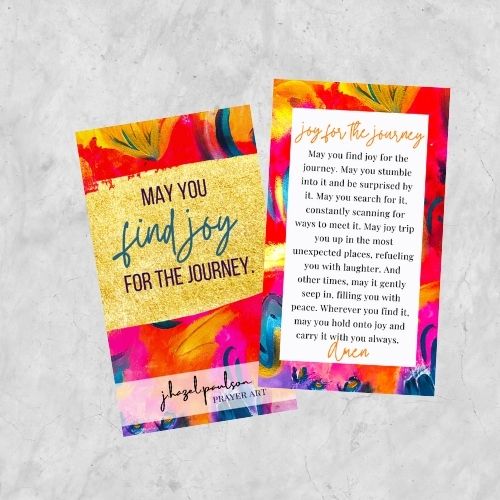 MAY YOU
find joy
FOR THE JOURNEY.
j.hazel paulson
PRAYER ART
joy for the journey
May you find joy for the
journey. May you stumble
into it and be surprised by
it. May you search for it,
constantly scanning for
ways to meet it. May joy trip
you up in the most
unexpected places, refueling
you with laughter. And
other times, may it gently
seep in, filling you with
peace. Wherever you find it,
may you hold onto joy and
carry it with you always.
amen